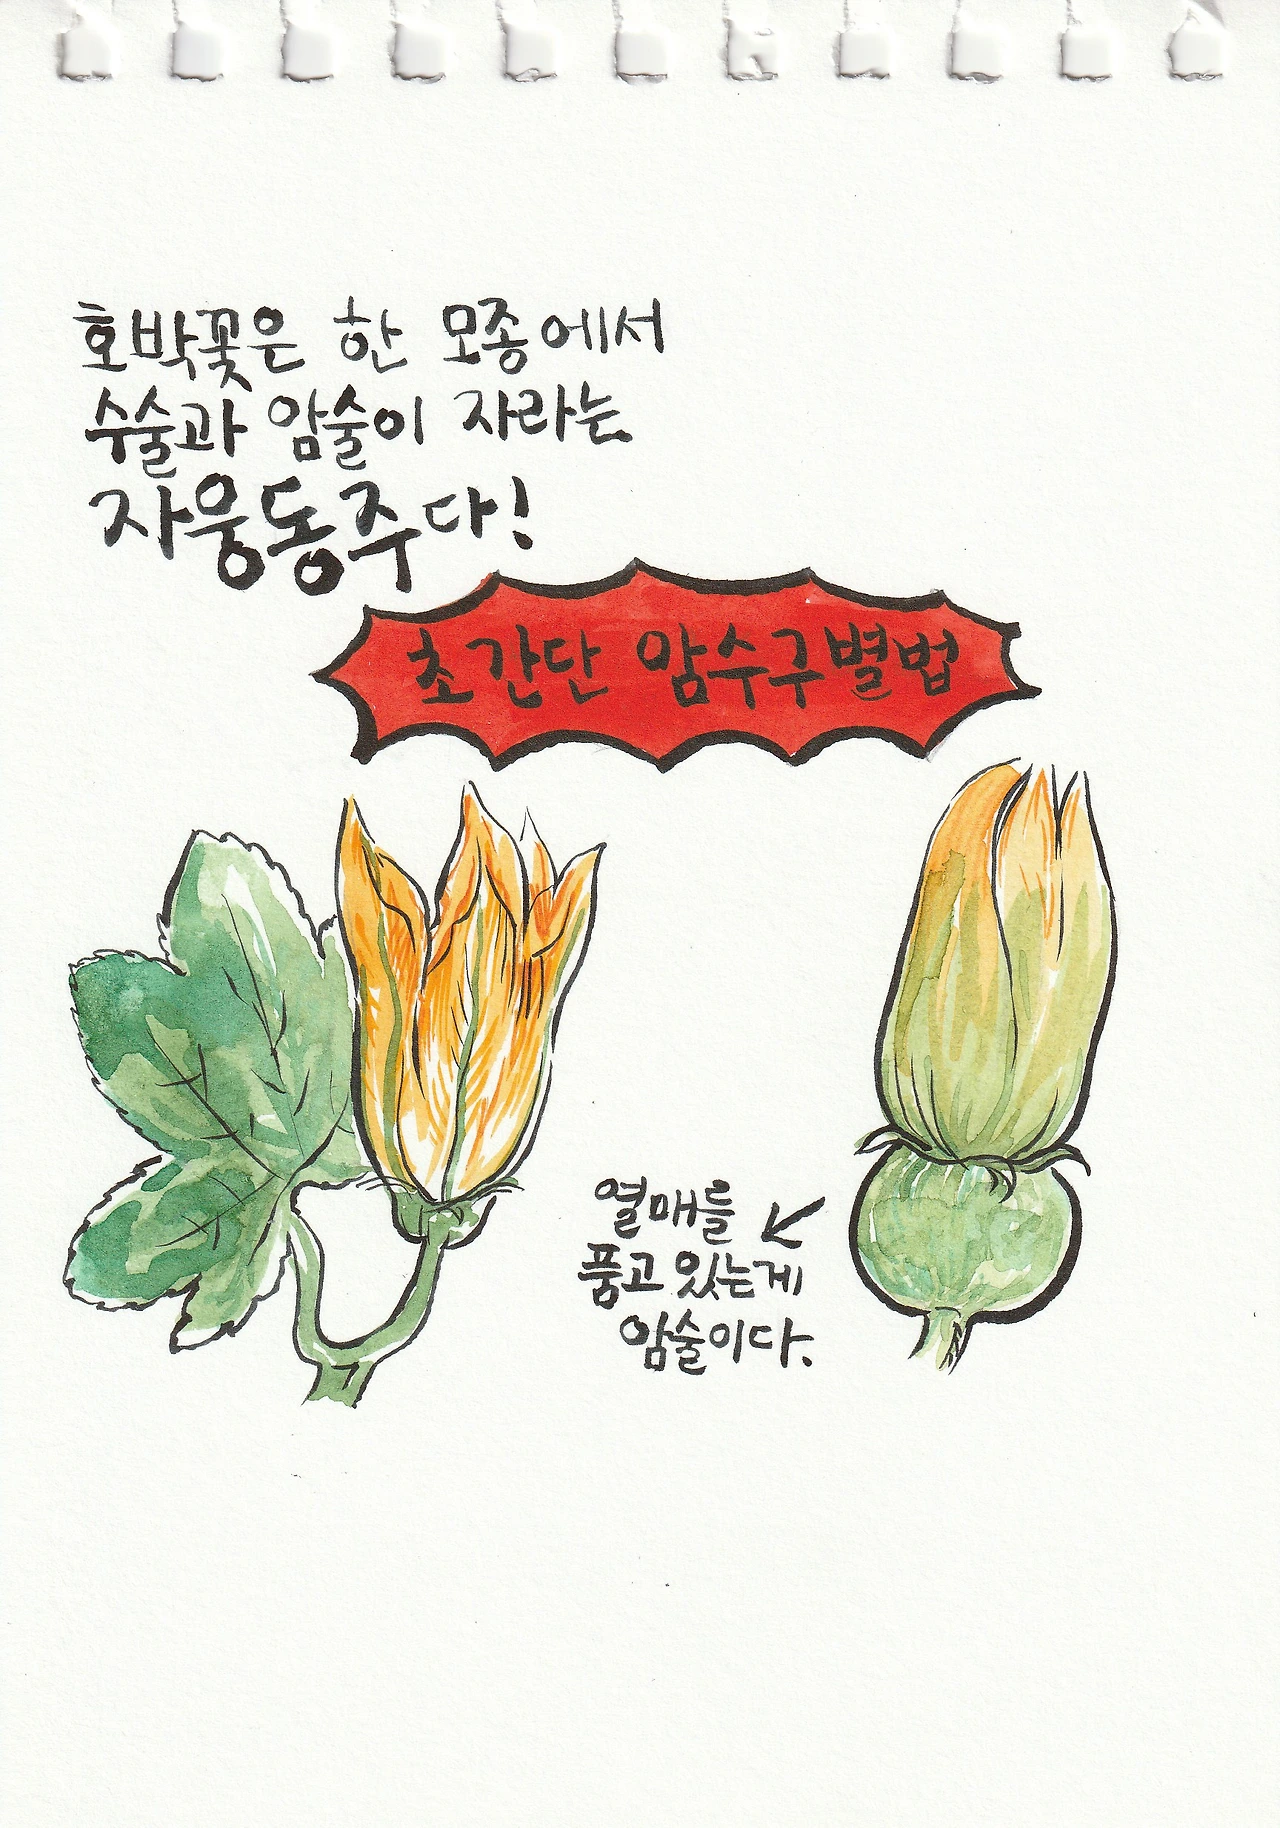 호박꽃은 한 모종에서
수술과 암술이 자라는
자웅동주다!
초간단 암수구별법
열매를
품고 있는게
암술이다.